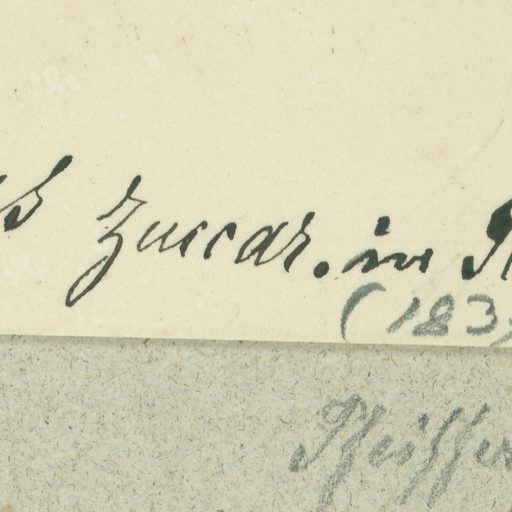 Zuccar. in
(183
Pfeiffer